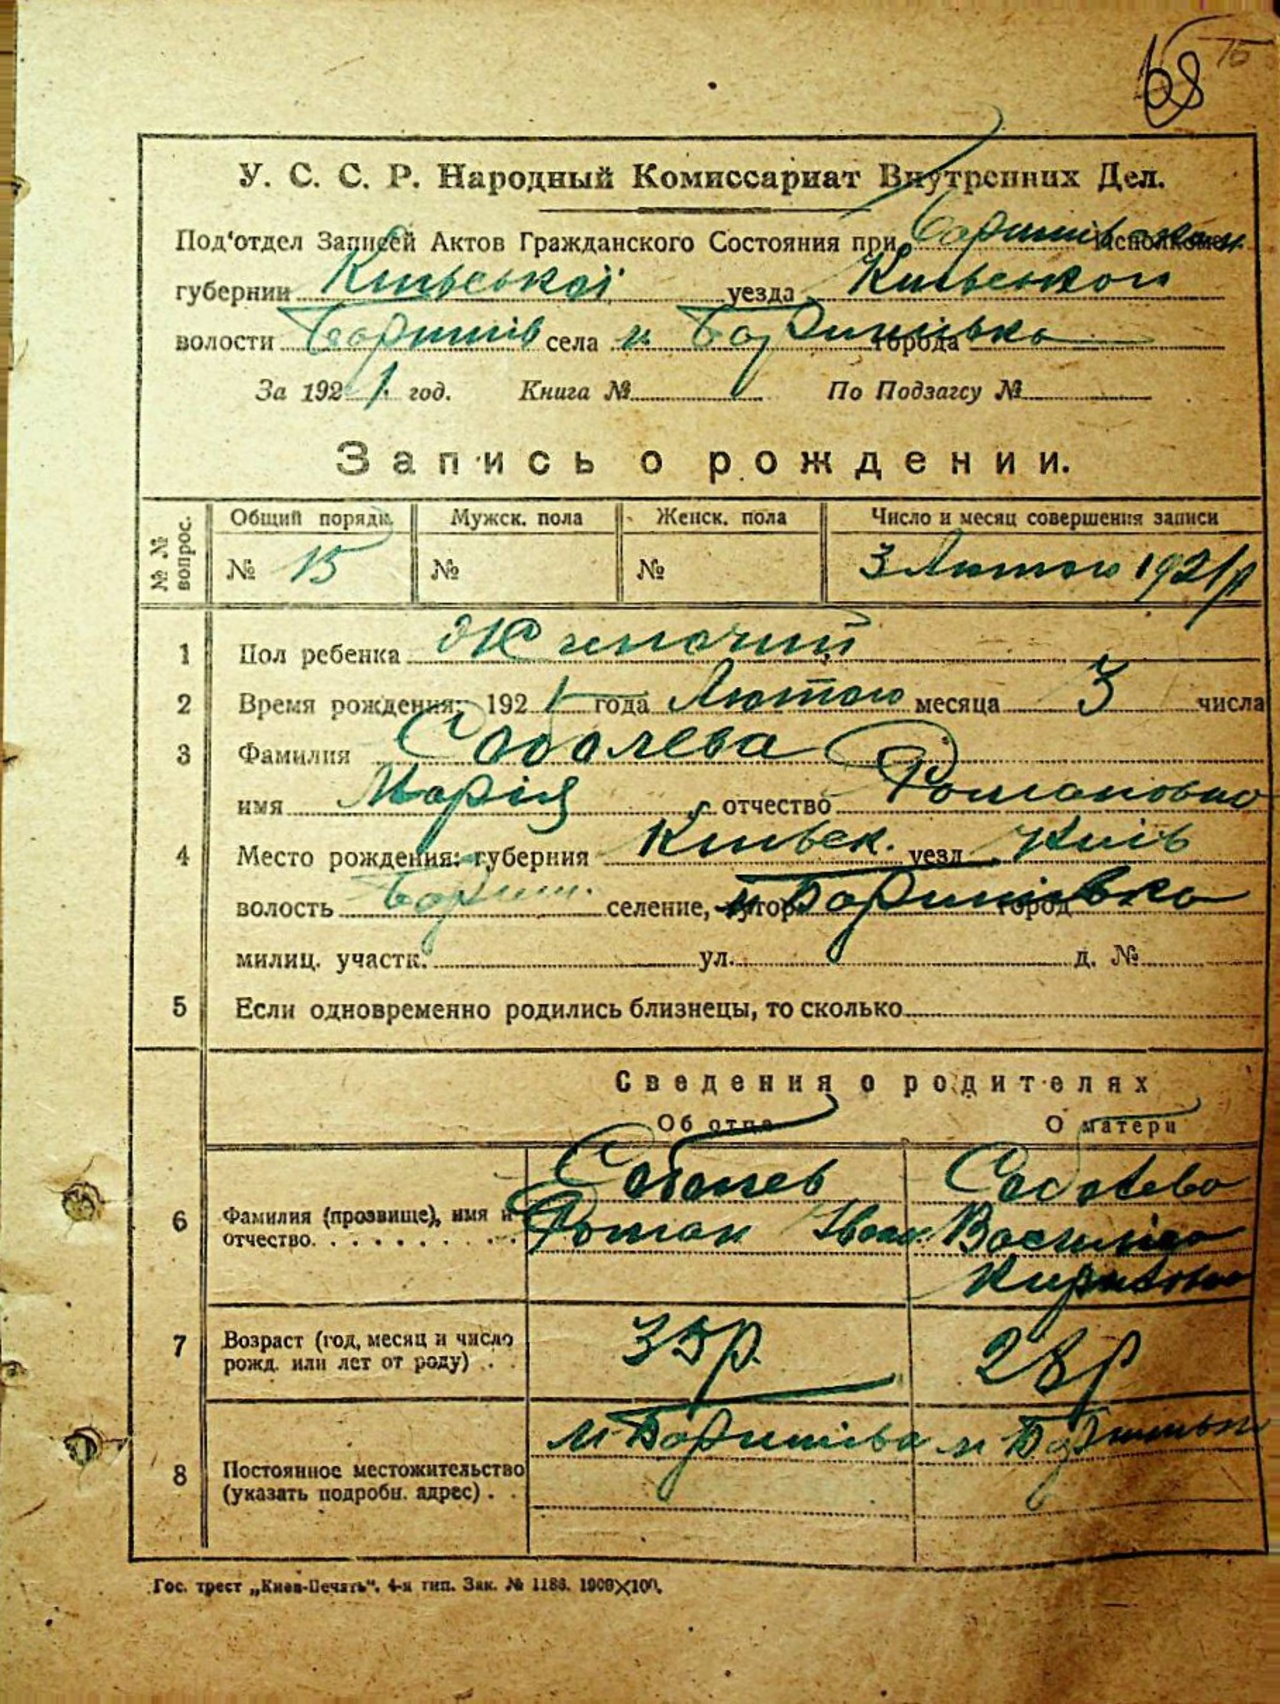 68 15
У. С. С. Р. Народный Комиссариат Внутренних Дел.
Под'отдел Записей Актов Гражданского Состояния при
губернии Київської уезда Київського
волости Баришів села м. Баришівка города
За 1921 год. Книга № По Подзагсу №
Запись о рождении.
№ № вопрос. Общий порядк. Мужск. пола Женск. пола Число и месяц совершения записи
№ 15 № № 3 Лютого 1921 р
1 Пол ребенка Жиночий
2 Время рождения: 1921 года Лютого месяца 3 числа
3 Фамилия Соболева
имя Марія отчество Романовна
4 Место рождения: губерния Київск. уезд Київ
волость Бариш. селение, хутор м. Баришівка город
милиц. участк. ул. д. №
5 Если одновременно родились близнецы, то сколько
Сведения о родителях
Об отце О матери
Соболев Соболева
6 Фамилия (прозвище), имя и Роман Іван. Василіса
отчество.
7 Возраст (год, месяц и число 35 р. 28 р
рожд. или лет от роду)
м Баришівка м Баришівка
8 Постоянное местожительство
(указать подробн. адрес)
Гос. трест „Киев-Печать“. 4-я тип. Зак. № 1186. 1000×100.